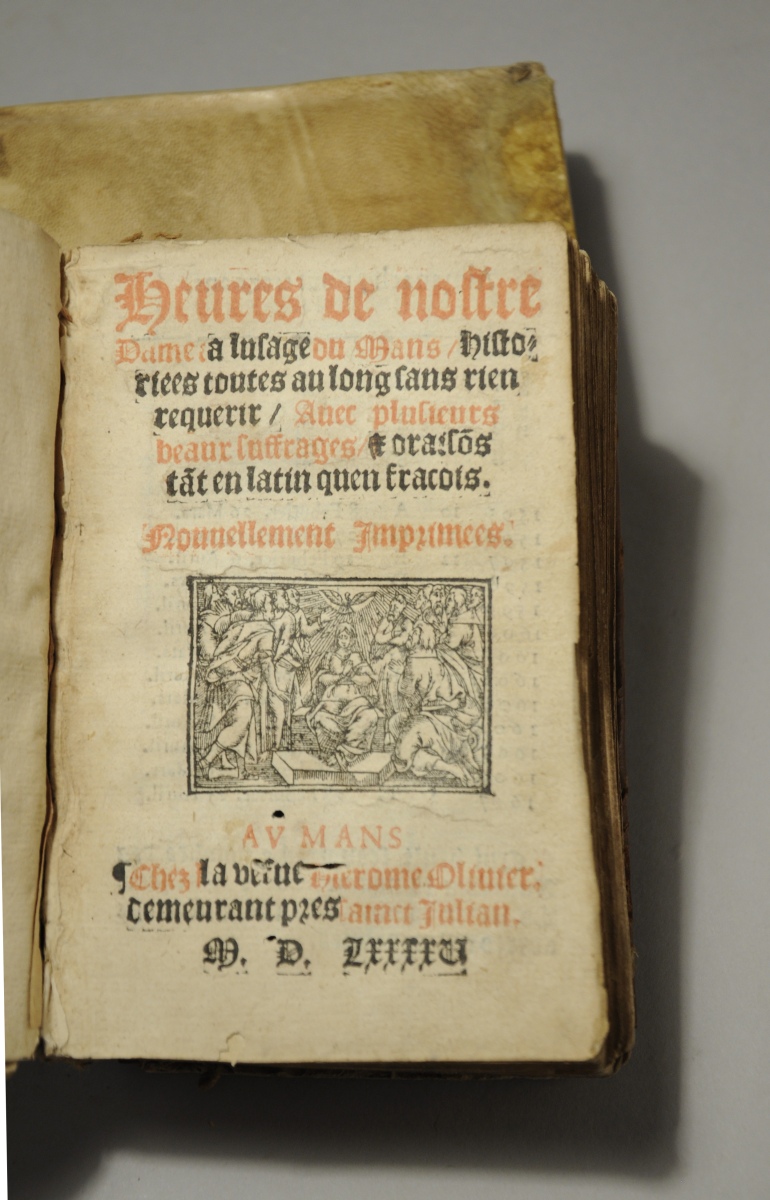 Heures de nostre
Dame a lusage du Mans / histo-
riees toutes au long sans rien
requerir / Auec plusieurs
beaux suffrages / & oraisõs
tãt en latin quen fracois.
Nouuellement Imprimees.
AV MANS
¶ Chez la vefue Hierome Oliuier.
demeurant pres sainct Julian.
M. D. LXXXXV